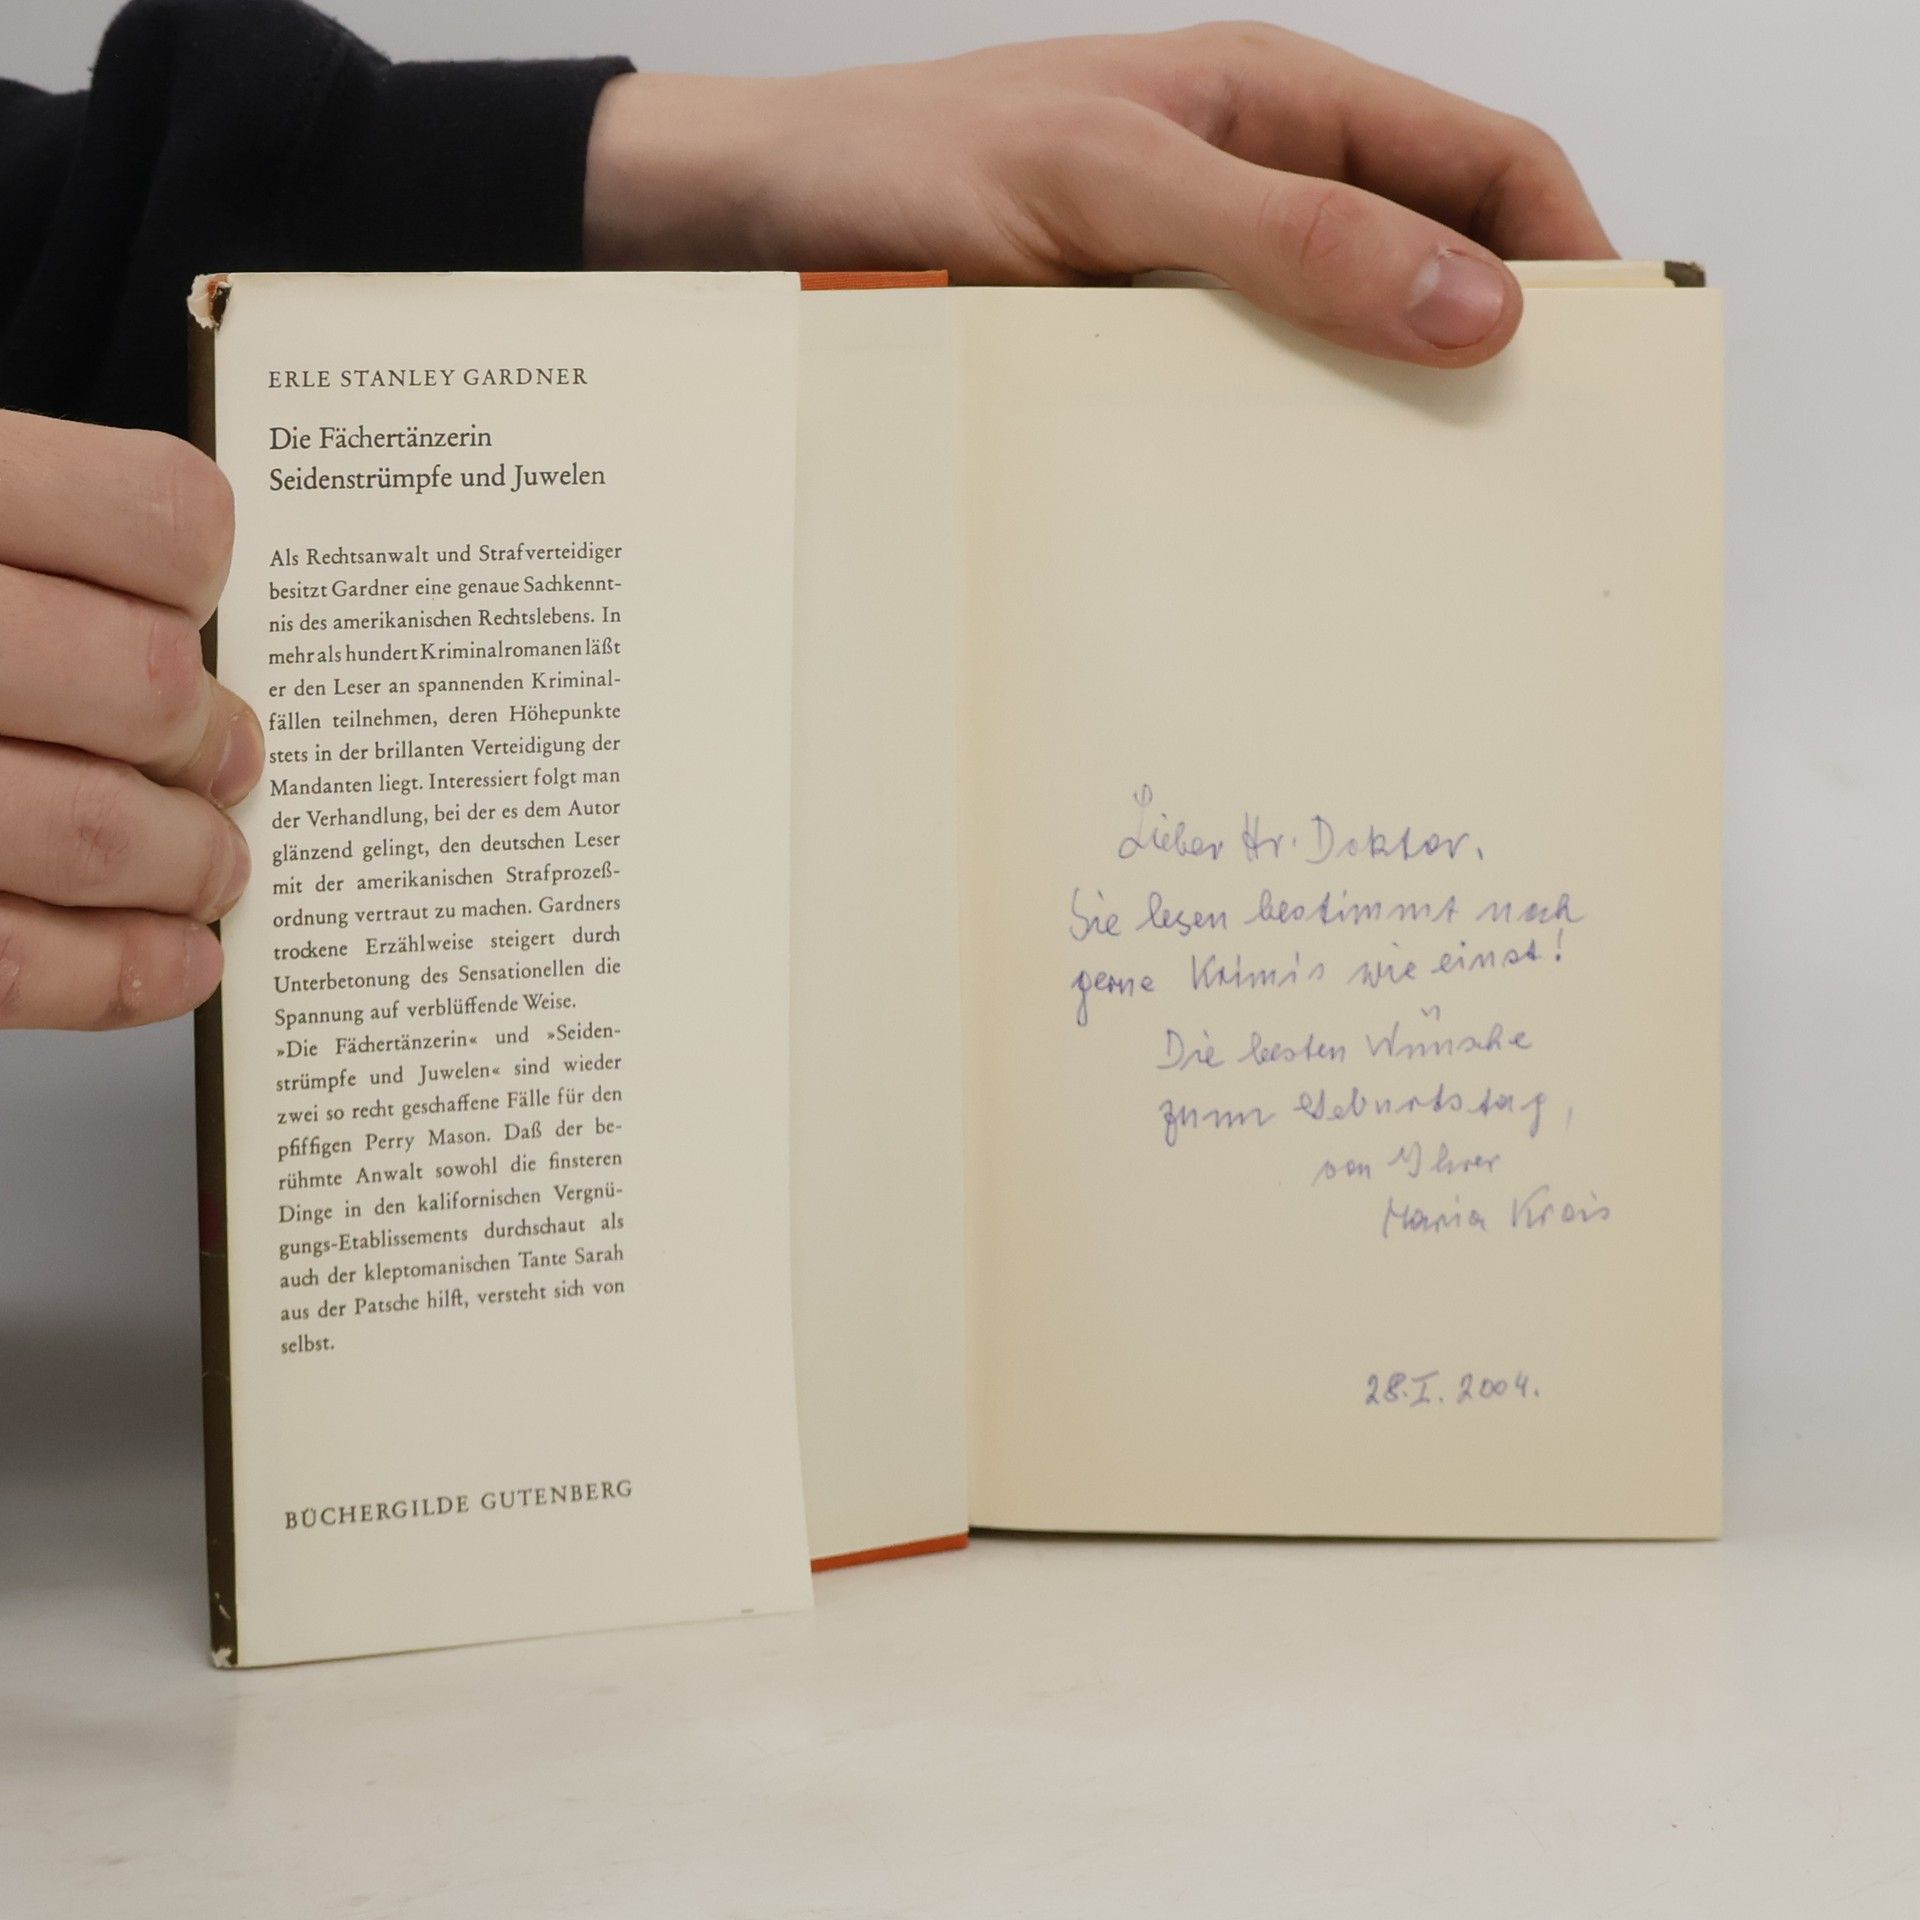 ERLE STANLEY GARDNER
Die Fächertänzerin
Seidenstrümpfe und Juwelen
Als Rechtsanwalt und Strafverteidiger
besitzt Gardner eine genaue Sachkennt-
nis des amerikanischen Rechtslebens. In
mehr als hundert Kriminalromanen läßt
er den Leser an spannenden Kriminal-
fällen teilnehmen, deren Höhepunkte
stets in der brillanten Verteidigung der
Mandanten liegt. Interessiert folgt man
der Verhandlung, bei der es dem Autor
glänzend gelingt, den deutschen Leser
mit der amerikanischen Strafprozeß-
ordnung vertraut zu machen. Gardners
trockene Erzählweise steigert durch
Unterbetonung des Sensationellen die
Spannung auf verblüffende Weise.
»Die Fächertänzerin« und »Seiden-
strümpfe und Juwelen« sind wieder
zwei so recht geschaffene Fälle für den
pfiffigen Perry Mason. Daß der be-
rühmte Anwalt sowohl die finsteren
Dinge in den kalifornischen Vergnü-
gungs-Etablissements durchschaut als
auch der kleptomanischen Tante Sarah
aus der Patsche hilft, versteht sich von
selbst.
BÜCHERGILDE GUTENBERG
Lieber Hr. Doktor.
Sie lesen bestimmt noch
gerne Krimis wie einst!
Die besten Wünsche
zum Geburtstag,
von Ihrer
Maria Krois
28.I.2004.